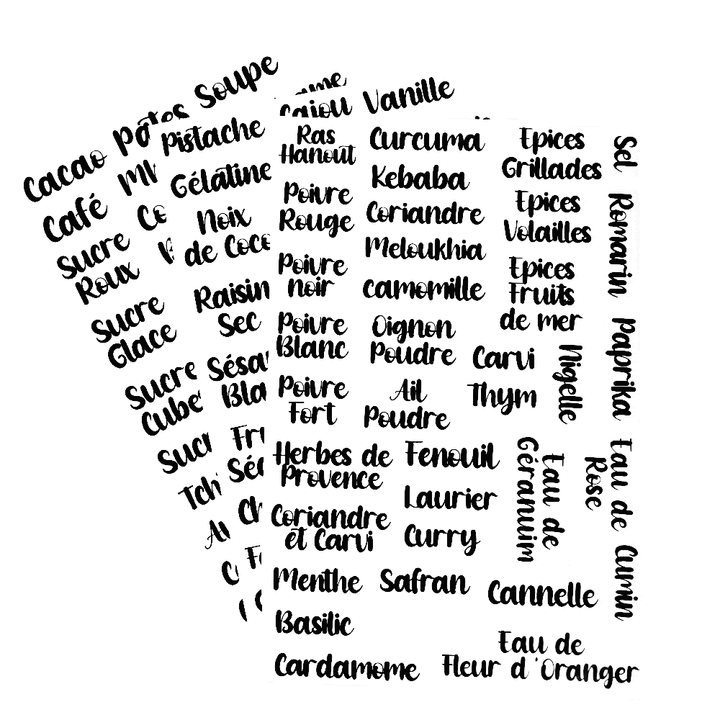 Soupe
Pâtes
Cacao
Café
Sucre
Roux
Sucre
Glace
Sucre
Cube
Pistache
Gélatine
Noix
de Coco
Raisin
Sec
Vanille
Ras
Hanout
Poivre
Rouge
Poivre
noir
Poivre
Blanc
Poivre
Fort
Herbes de
Provence
Coriandre
et Carvi
Menthe
Basilic
Cardamome
Curcuma
Kebaba
Coriandre
Meloukhia
camomille
Oignon
Poudre
Ail
Poudre
Fenouil
Laurier
Curry
Safran
Epices
Grillades
Epices
Volailles
Epices
Fruits
de mer
Carvi
Thym
Nigelle
Eau de
Géranuim
Cannelle
Eau de
Fleur d'Oranger
Sel
Romarin
Paprika
Eau de
Rose
Cumin